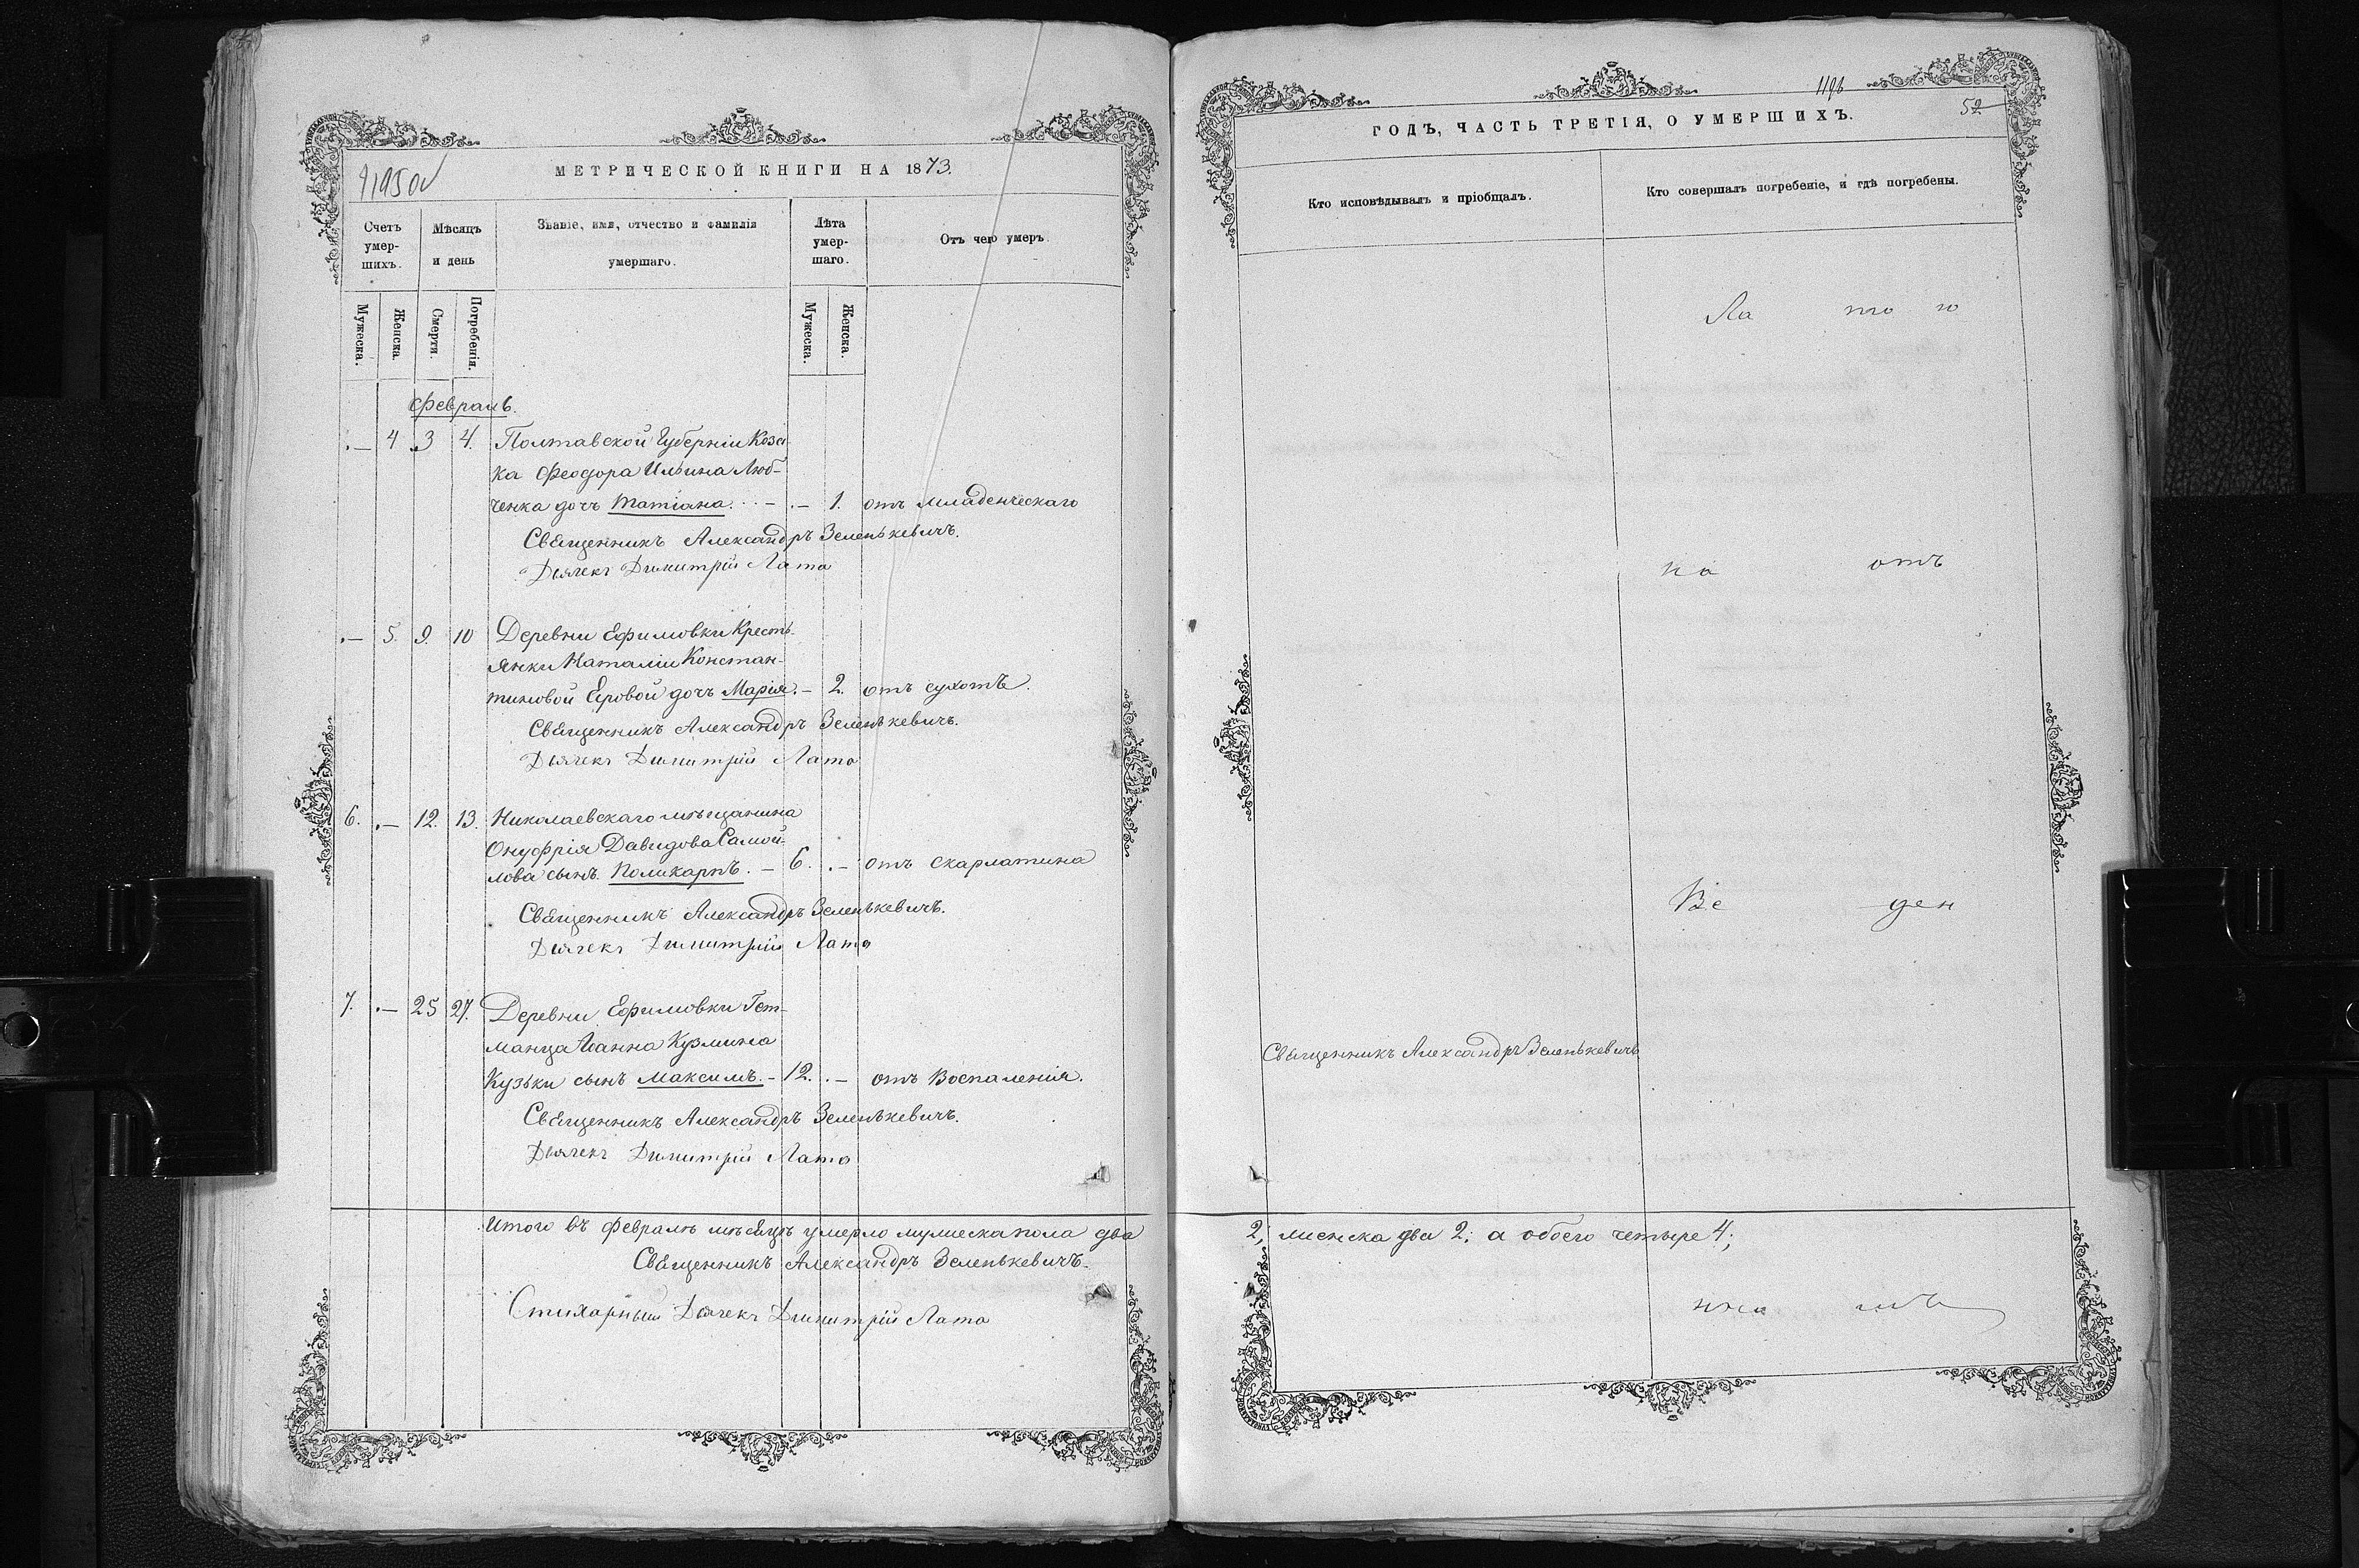 МЕТРИЧЕСКОЙ КНИГИ НА 1873.
Счетъ умер-шихъ.
Мѣсяцъ и день
Званіе, имя, отчество и фамилія умершаго.
Лѣта умер-шаго.
Отъ чего умеръ.
Мужеска.
Женска.
Смерти.
Погребенія.
Мужеска.
Женска.
Февраль.
.— 4 3 4. Полтавской Губерніи Коза-
ка Феодора Ильина Люб-
ченка дочь Татіана. - .— 1. отъ младенческаго
Священникъ Александръ Зеленькевичъ.
Дьячекъ Димитрій Лата
.— 5. 9. 10 Деревни Ефимовки Кресть-
янки Наталіи Констан-
тиновой Еровой дочь Марія. - 2. отъ сухотъ.
Священникъ Александръ Зеленькевичъ.
Дьячекъ Димитрій Лата
6. .— 12. 13. Николаевскаго мѣщанина
Онуфрія Давидова Самой-
лова сынъ Поликарпъ. - 6. .— отъ скарлатина
Священникъ Александръ Зеленькевичъ.
Дьячекъ Димитрій Лата
7. .— 25 27. Деревни Ефимовки Гет-
манца Іоанна Кузмина
Кузьки сынъ Максимъ. - 12. .— отъ воспаленія.
Священникъ Александръ Зеленькевичъ.
Дьячекъ Димитрій Лата
Итого въ Февралѣ мѣсяцѣ умерло мужеска пола два
Священникъ Александръ Зеленькевичъ.
Стихарный Дьячекъ Димитрій Лата
1196
52
ГОДЪ, ЧАСТЬ ТРЕТІЯ, О УМЕРШИХЪ.
Кто исповѣдывалъ и пріобщалъ.
Кто совершалъ погребеніе, и гдѣ погребены.
на отъ
Ве ден
Священникъ Александръ Зеленькевичъ
2; женска два 2; а обоего четыре 4;